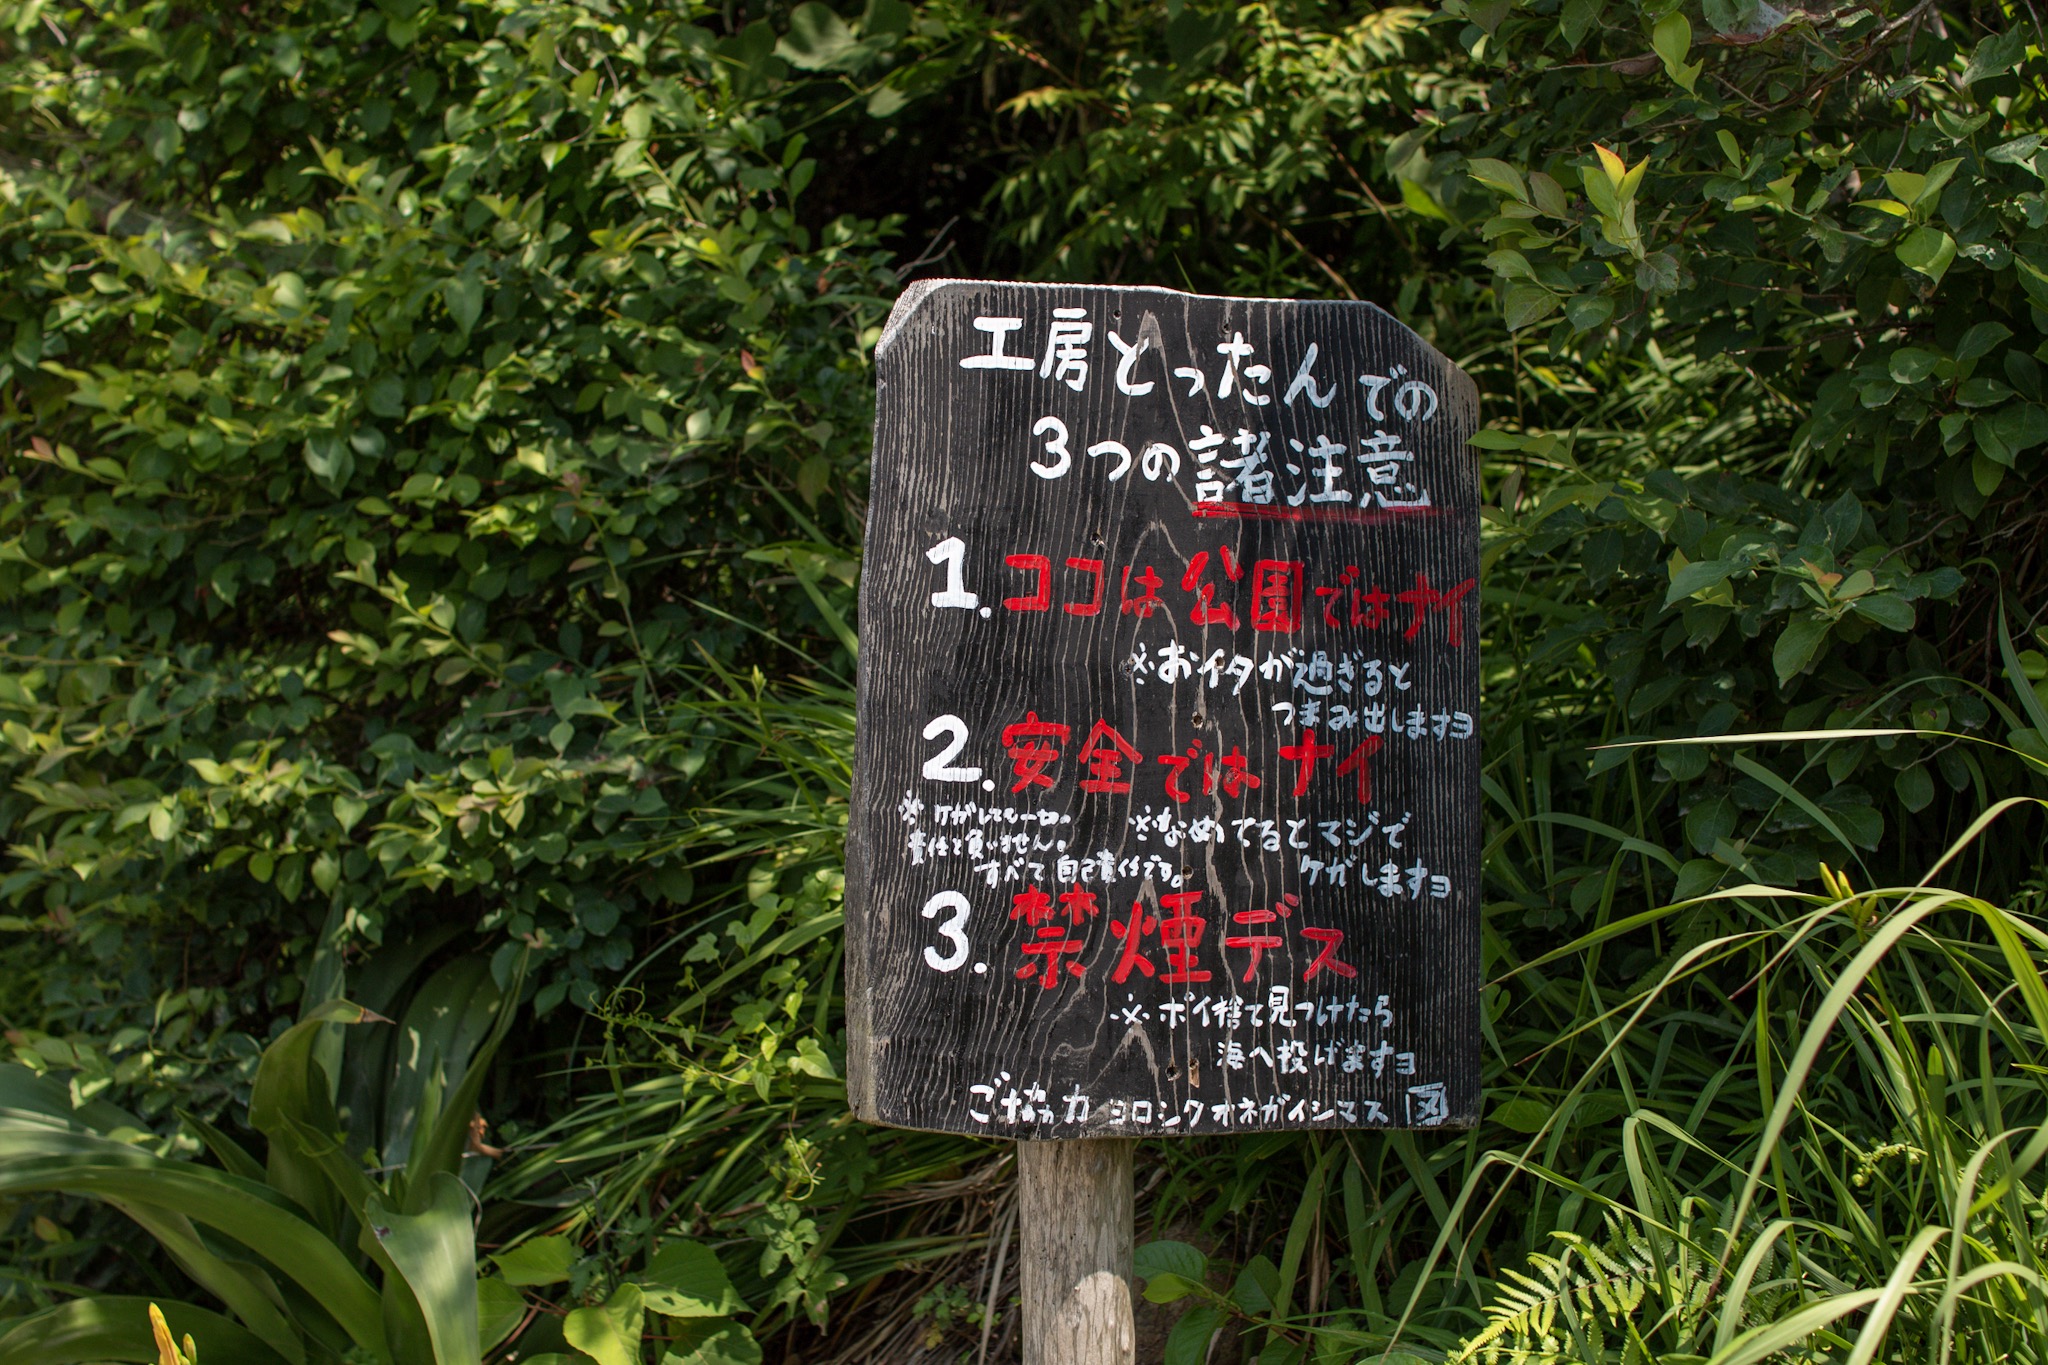 工房とったんでの
3つの諸注意
1. ココは公園ではナイ
※おイタが過ぎると
つまみ出しますヨ
2. 安全ではナイ
※ケガしても一切
責任を負いません。
すべて自己責任です。
※なめてるとマジで
ケガしますヨ
3. 禁煙デス
※ポイ捨て見つけたら
海へ投げますヨ
ご協力ヨロシクオネガイシマス